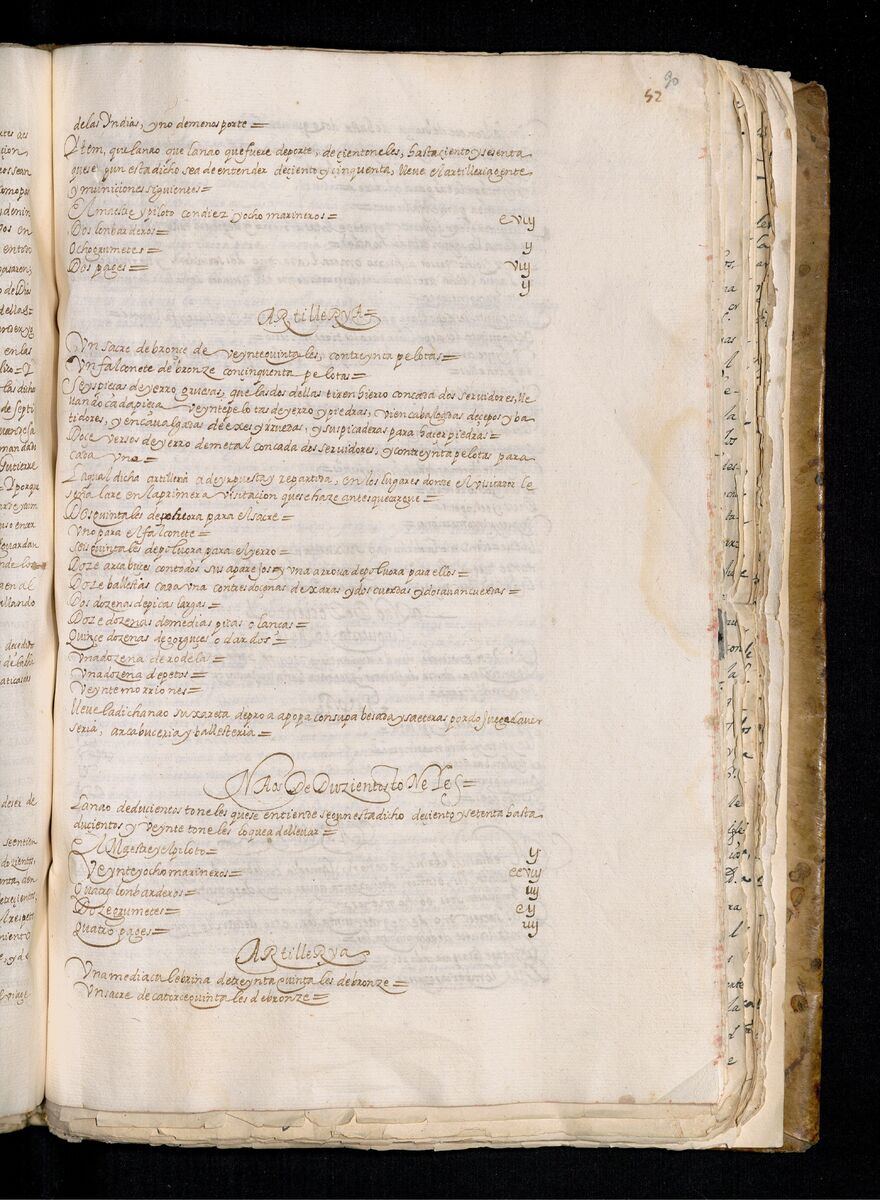 90
52
delas Yndias, y no demenos porte =
Ytem, que la nao que la nao que fuere de porte, de çientoneles, hasta çiento y sesenta
que segun esta dicho sea de entender de çiento y çinquenta, lleve el artilleria gente
y muniçiones siguientes =
El maestre y piloto con diez y ocho marineros = xviij
Dos lonbarderos = ij
Ocho grumetes = viij
Dos pages = ij
ARtilleRYA =
Vn sacre de bronçe de veynte quintales, con treynta pelotas =
Vn falconete de bronze con çinquenta pelotas =
Seys pieças de yerro gruesas, que las dos dellas tiren hierro con cada dos servidores, lle
vando cada pieça veynte pelotas de yerro y piedras, vien cabalgadas de çepos y ba
tidores, y encavalgadas de exes y ruedas, y sus picaderas para hazer piedras =
Doce versos de yerro de metal con cada dos servidores, y con treynta pelotas para
cada vno =
La qual dicha artilleria a de yr puesta y repartida, en los lugares donde el visitador le
señalare en la primera visitaçion que se haze antes que cargue =
Dos quintales de polvora para el sacre =
Vno para el falconete =
Seis quintales de poluora para el yerro =
Doze arcabuces con todos sus aparejos = y vna arrova de poluora para ellos =
Doze ballestas cada vna con tres doçenas de xaras y dos cuerdas y dos avancuerdas =
Dos dozenas de picas largas =
Doze dozenas de medias picas o lanças =
Quinçe dozenas de gorguçes o dardos =
Vna dozena de rodelas =
Vna dozena de petos =
Veynte morriones =
Lleve la dicha nao su xareta de proa a popa con su pabesada y saeteras por do juege la ver
seria, arcabuceria y ballesteria =
NAos De DuzientostoNeLes =
La nao de ducientos toneles que se entiende segun esta dicho de çiento y setenta hasta
ducientos y veynte toneles lo que a de llevar =
El Maestre y el piloto = ij
Veynte y ocho marineros = xxviij
Quatro lonbarderos = iiij
Doze grumetes = xij
Quatro pages = iiij
ARtilleRya
Vna media culebrina de treynta quintales de bronze =
Vn sacre de catorce quintales de bronze =